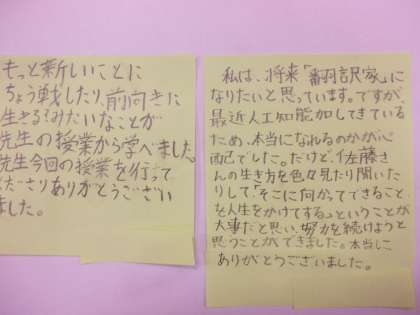 もっと新しいことに
ちょう戦したり、前向きに
生きる!みたいなことが
先生の授業から学べました。
先生今回の授業を行って
くださりありがとうござい
ました。
私は、将来「翻訳家」に
なりたいと思っています。ですが、
最近人工知能加してきている
ため、本当になれるのかが心
配でした。だけど、佐藤さ
んの生き方を色々見たり聞いた
りして「そこに向かってできること
を人生をかけてする」ということが
大事だと思い、努力を続けようと
思うことができました。本当に
ありがとうございました。